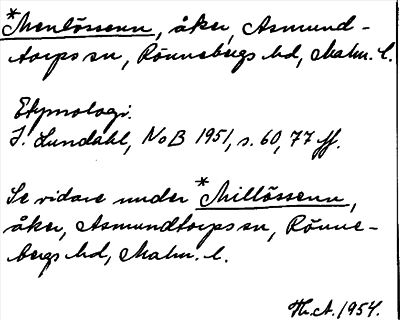 *Menlössenn, åker, Asmund-
torps sn, Rönnebergs hd, Malm. l.
Etymologi.
I. Lundahl, NoB 1951, s. 60, 77 ff.
Se vidare under *Millössenn,
åker, Asmundtorps sn, Rönne-
bergs hd, Malm. l.
Th.A. 1954.